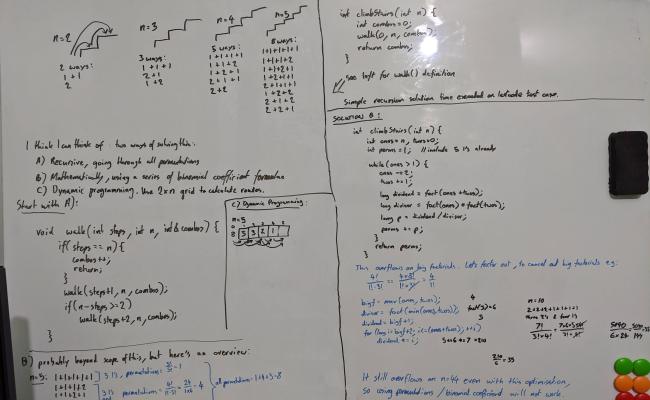 n=2
2 ways:
1 + 1
2
n=3
3 ways:
1+1+1
2+1
1+2
n=4
5 ways:
1+1+1+1
1+1+2
1+2+1
2+1+1
2+2
n=5
8 ways:
1+1+1+1+1
1+1+1+2
1+1+2+1
1+2+1+1
2+1+1+1
1+2+2
2+1+2
2+2+1
I think I can think of two ways of solving this:
A) Recursive, going through all permutations
B) Mathematically, using a series of binomial coefficient formulae
C) Dynamic programming. Use 2xn grid to calculate routes.
Start with A):
void walk(int steps, int n, int& combos) {
if(steps == n) {
combos++;
return;
}
walk(steps+1, n, combos);
if(n-steps >= 2)
walk(steps+2, n, combos);
}
C) Dynamic Programming:
n=5
B) probably beyond scope of this, but here's an overview:
n=5:
1+1+1+1+1
int climbStairs(int n) {
int combos=0;
walk(0, n, combos);
return combos;
}
see left for walk() definition
Simple recursion solution time exceeded on leetcode test case.
SOLUTION B:
int climbStairs(int n) {
int ones=n, twos=0;
int perms=1; // include 5 1s already
while(ones > 1) {
ones -= 2;
twos += 1;
long dividend = fact(ones+twos);
long divisor = fact(ones)*fact(twos);
long p = dividend/divisor;
perms += p;
}
return perms;
}
This overflows on big factorials. Let's factor out, to cancel out big factorials e.g:
bigf = max(ones, twos);
divisor = fact(min(ones, twos));
dividend = bigf+1;
dividend *= i;
n=10
It still overflows on n=44 even with this optimisation,
so using permutations / binomial coefficient will not work.